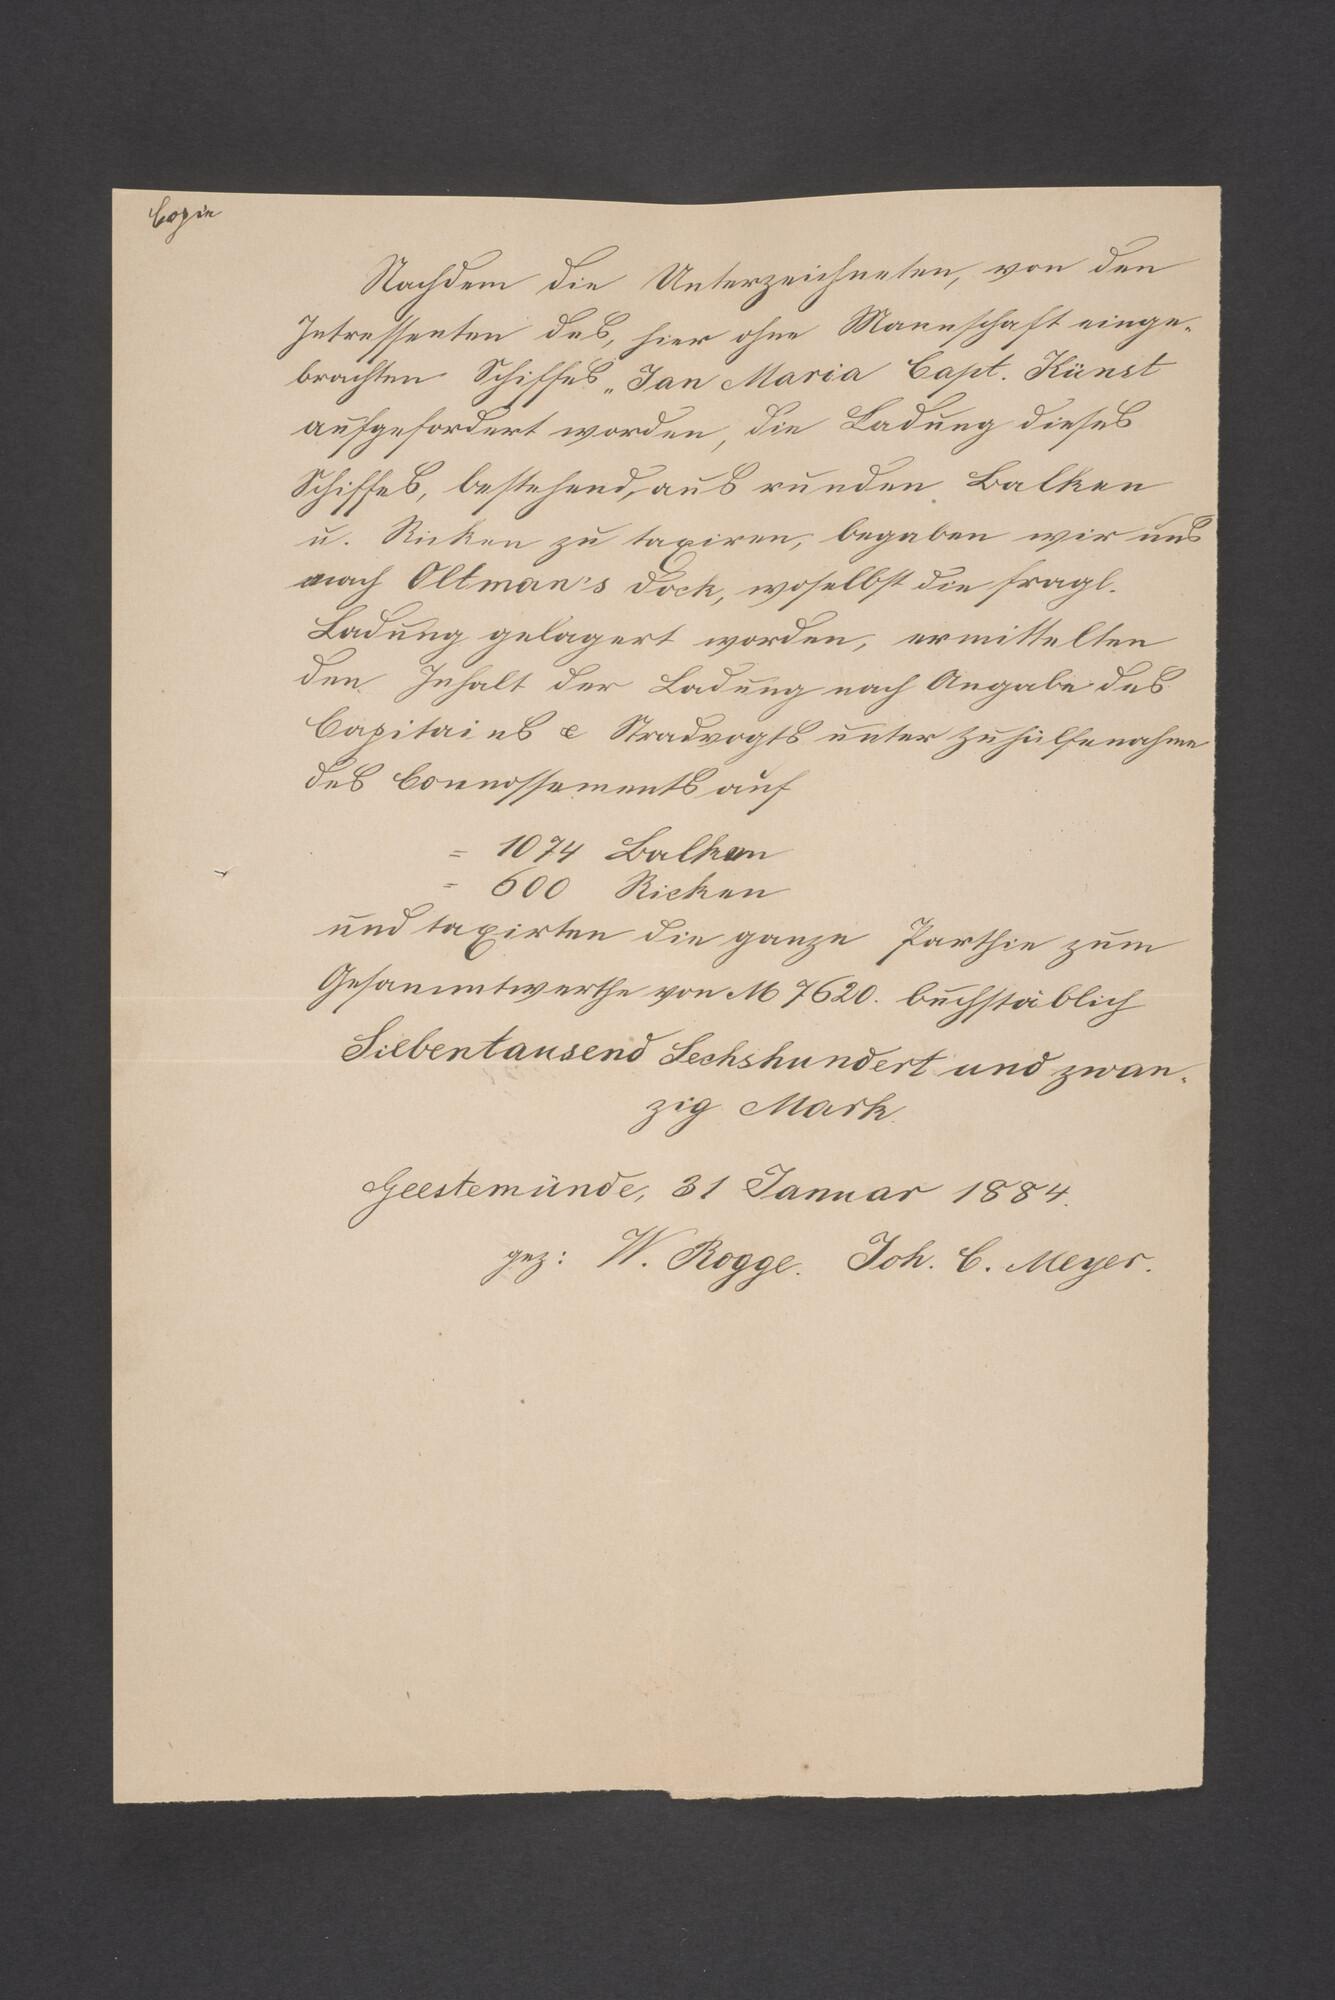 Copie
Nachdem die Unterzeichneten, von den
Intressenten des, hier ohne Mannschaft einge-
brachten Schiffes „Jan Maria Capt. Künst
aufgefordert worden, die Ladung dieses
Schiffes, bestehend, aus runden Balken
u. Ricken zu taxiren, begaben wir uns
nach Oltman's Dock, woselbst die fragl.
Ladung gelagert worden, ermittelten
den Inhalt der Ladung nach Angabe des
Capitains & Stradvogts unter Zuhülfenahme
des Connossements auf
= 1074 Balken
= 600 Ricken
und taxirten die ganze Parthie zum
Gesammtwerthe von M 7620. buchstäblich
Siebentausend Sechshundert und zwan-
zig Mark.
Geestemünde, 31 Januar 1884.
gez: W. Rogge. Joh. C. Meyer.